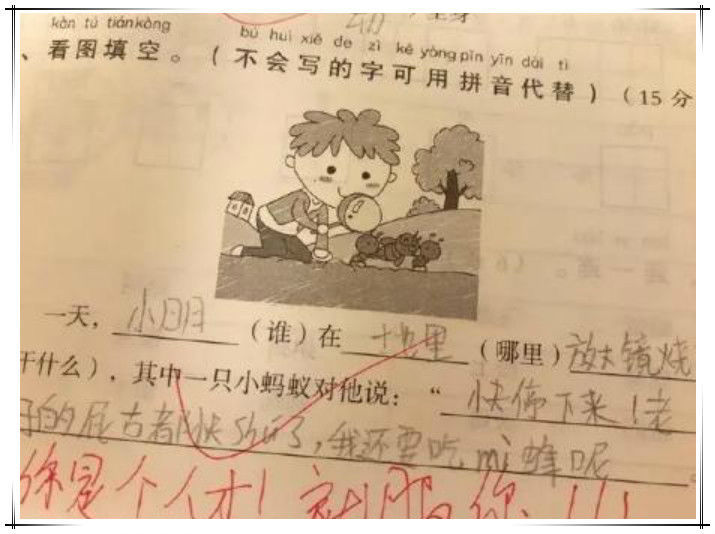 kàn tú tiánkòng
bú huì xiě de zì kě yòng pīn yīn dài tì
、看图填空。（不会写的字可用拼音代替）（15分
一天，小明（谁）在土地里（哪里）放大镜烧
干什么），其中一只小蚂蚁对他说：“快停下来！老
子的屁古都快shú了，我还要吃mì蜂呢。
你是个人才！就服你！！！